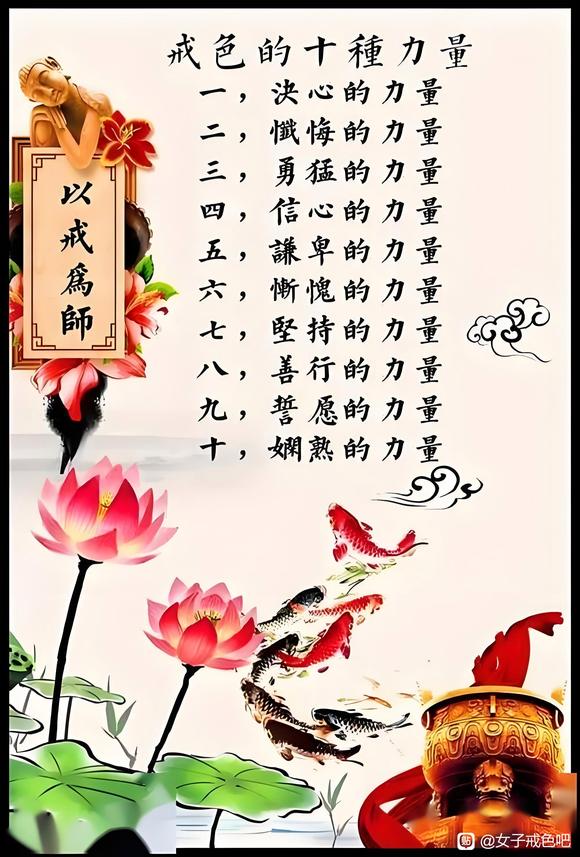 戒色的十種力量
一，決心的力量
二，懺悔的力量
三，勇猛的力量
四，信心的力量
五，謙卑的力量
六，慚愧的力量
七，堅持的力量
八，善行的力量
九，誓愿的力量
十，嫻熟的力量
以戒爲師
貼 @女子戒色吧